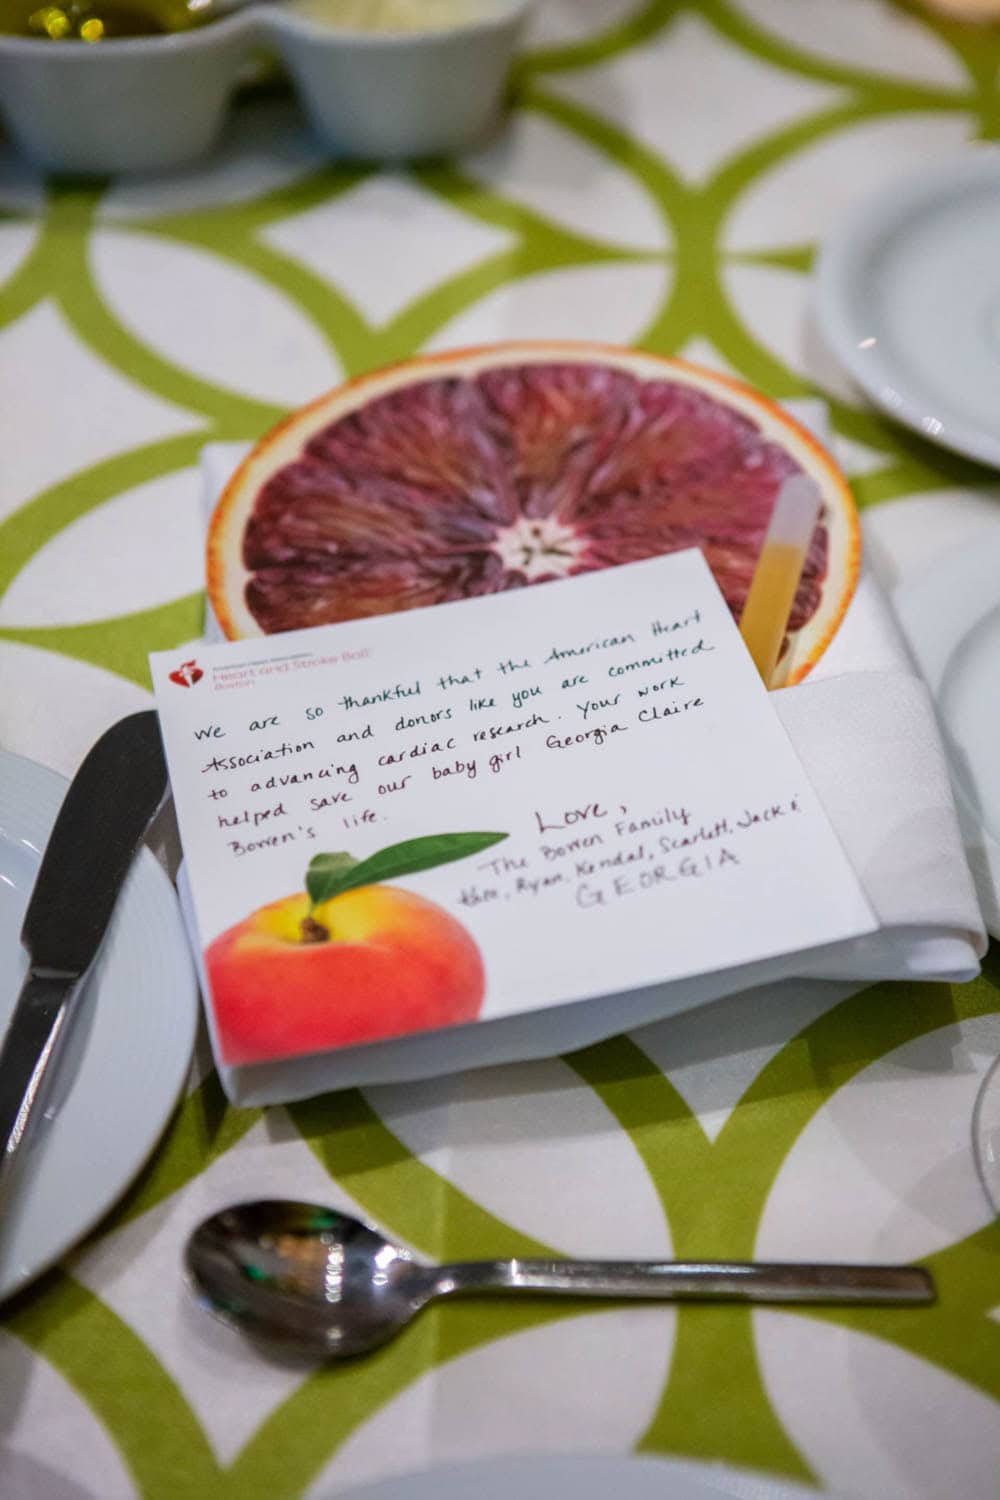 American Heart Association
Heart and Stroke Ball
Boston
We are so thankful that the American Heart
Association and donors like you are committed
to advancing cardiac research. Your work
helped save our baby girl Georgia Claire
Borren's life.
Love,
The Borren Family
Ryan, Kendal, Scarlett, Jack &
GEORGIA